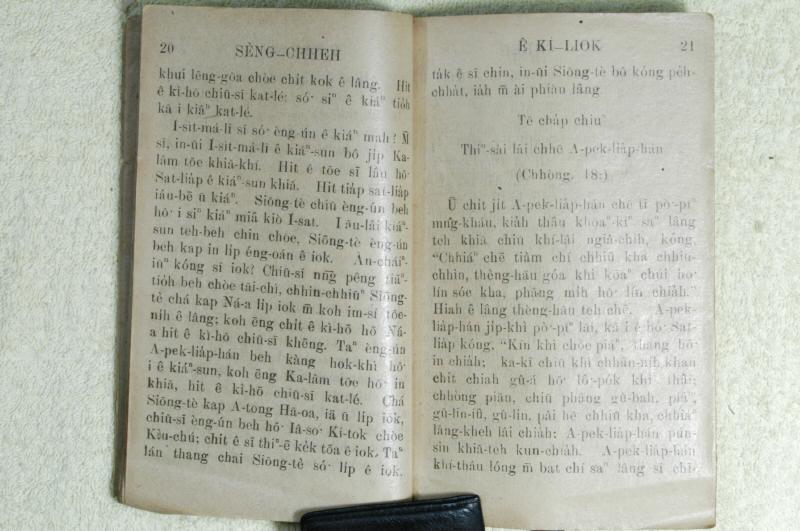 20 SÈNG–CHHEH
khui lēng-gōa chòe chit kok ê lâng. Hit
ê kì-hō chiū-sī kat-lé; só͘ siⁿ ê kiáⁿ tio̍h
kā i kiâⁿ kat-lé.
I-sit-má-lī sī só͘ èng-ún ê kiáⁿ mah? M̄
sī, in-ūi I-sit-má-lī ê kiáⁿ-sun bô ji̍p Ka-
lâm tōe khiā-khí. Hit ê tōe sī lâu hō͘
Sat-lia̍p ê kiáⁿ-sun khiā. Hit tia̍p sat-lia̍p
iáu-bē ū kiáⁿ. Siōng-tè chiū èng-ún beh
hō͘ i siⁿ kiáⁿ miâ kiò I-sat. I āu-lâi kiáⁿ-
sun teh-beh chin chōe, Siōng-tè èng-ún
beh kap in li̍p éng-oán ê iok. An-cháiⁿ-
iūⁿ kóng sí iok? Chiū-sī nn̄g pêng tiāⁿ-
tio̍h beh chòe tāi-chì, chhin-chhiūⁿ Siōng-
tè chá kap Ná-a li̍p iok m̄ koh im-sí tōe-
nih ê lâng; koh ēng chit ê kì-hō hō͘ Ná-
a hit ê kì-hō chiū-sī khēng. Taⁿ èng-ún
A-pek-lia̍p-hán beh kàng hok-khì hō͘
i ê kiáⁿ-sun, koh ēng Ka-lâm tōe hō͘ in
khiā, hit ê kì-hō chiū-sī kat-lé. Chá
Siōng-tè kap A-tong Hā-oa, iā ū li̍p iok,
chiū-sī èng-ún beh hō͘ Iâ-so͘ Ki-tok chòe
Kiù-chú; chit ê sī thiⁿ-ē ke̍k tōa ê iok. Taⁿ
lán thang chai Siōng-tè só͘ li̍p ê iok,
Ê KÌ–LIO̍K 21
ta̍k ê sī chin, in-ūi Siōng-tè bô kóng pe̍h-
chha̍t, iā m̄ ài phiàn lâng
Tē cha̍p chiuⁿ
Thiⁿ-sài lâi chhē A-pek-lia̍p-hán
(Chhòng. 18:)
Ū chi̍t ji̍t A-pek-lia̍p-hán chē tī pò͘-pîⁿ
mn̂g-kháu, kia̍h thâu khòaⁿ-kìⁿ saⁿ lâng
teh khiā chiū khí-lâi ngiâ-chih, kóng,
“Chhiáⁿ chē tiàm chí chhiū kha chhiu-
chhìn, thèng-hāu góa khì kōaⁿ chúi hō͘
lín sóe kha, phâng mi̍h hō͘ lín chia̍h.”
Hiah ê lâng thèng-hāu teh chē. A-pek-
lia̍p-hán ji̍p-khì pò͘-pîⁿ lāi, kā i ê bó͘ Sat-
lia̍p kóng, “Kín khì chòe piáⁿ, thang hō͘
in chia̍h; ka-kī chiū khì chhân-nih khan
chi̍t chiah gû-á hō͘ lô͘-po̍k khì thâi;
chhòng piān, chiū phâng gû-bah, piáⁿ,
gû-lin-iû, gû-lin, pâi hē chhiū kha, chhiáⁿ
lâng-kheh lâi chia̍h; A-pek-lia̍p-hán pún-
sin khiā-teh kun-chia̍h. A-pek-lia̍p-hán
khí-thâu lóng m̄ bat chí saⁿ lâng sī chī-